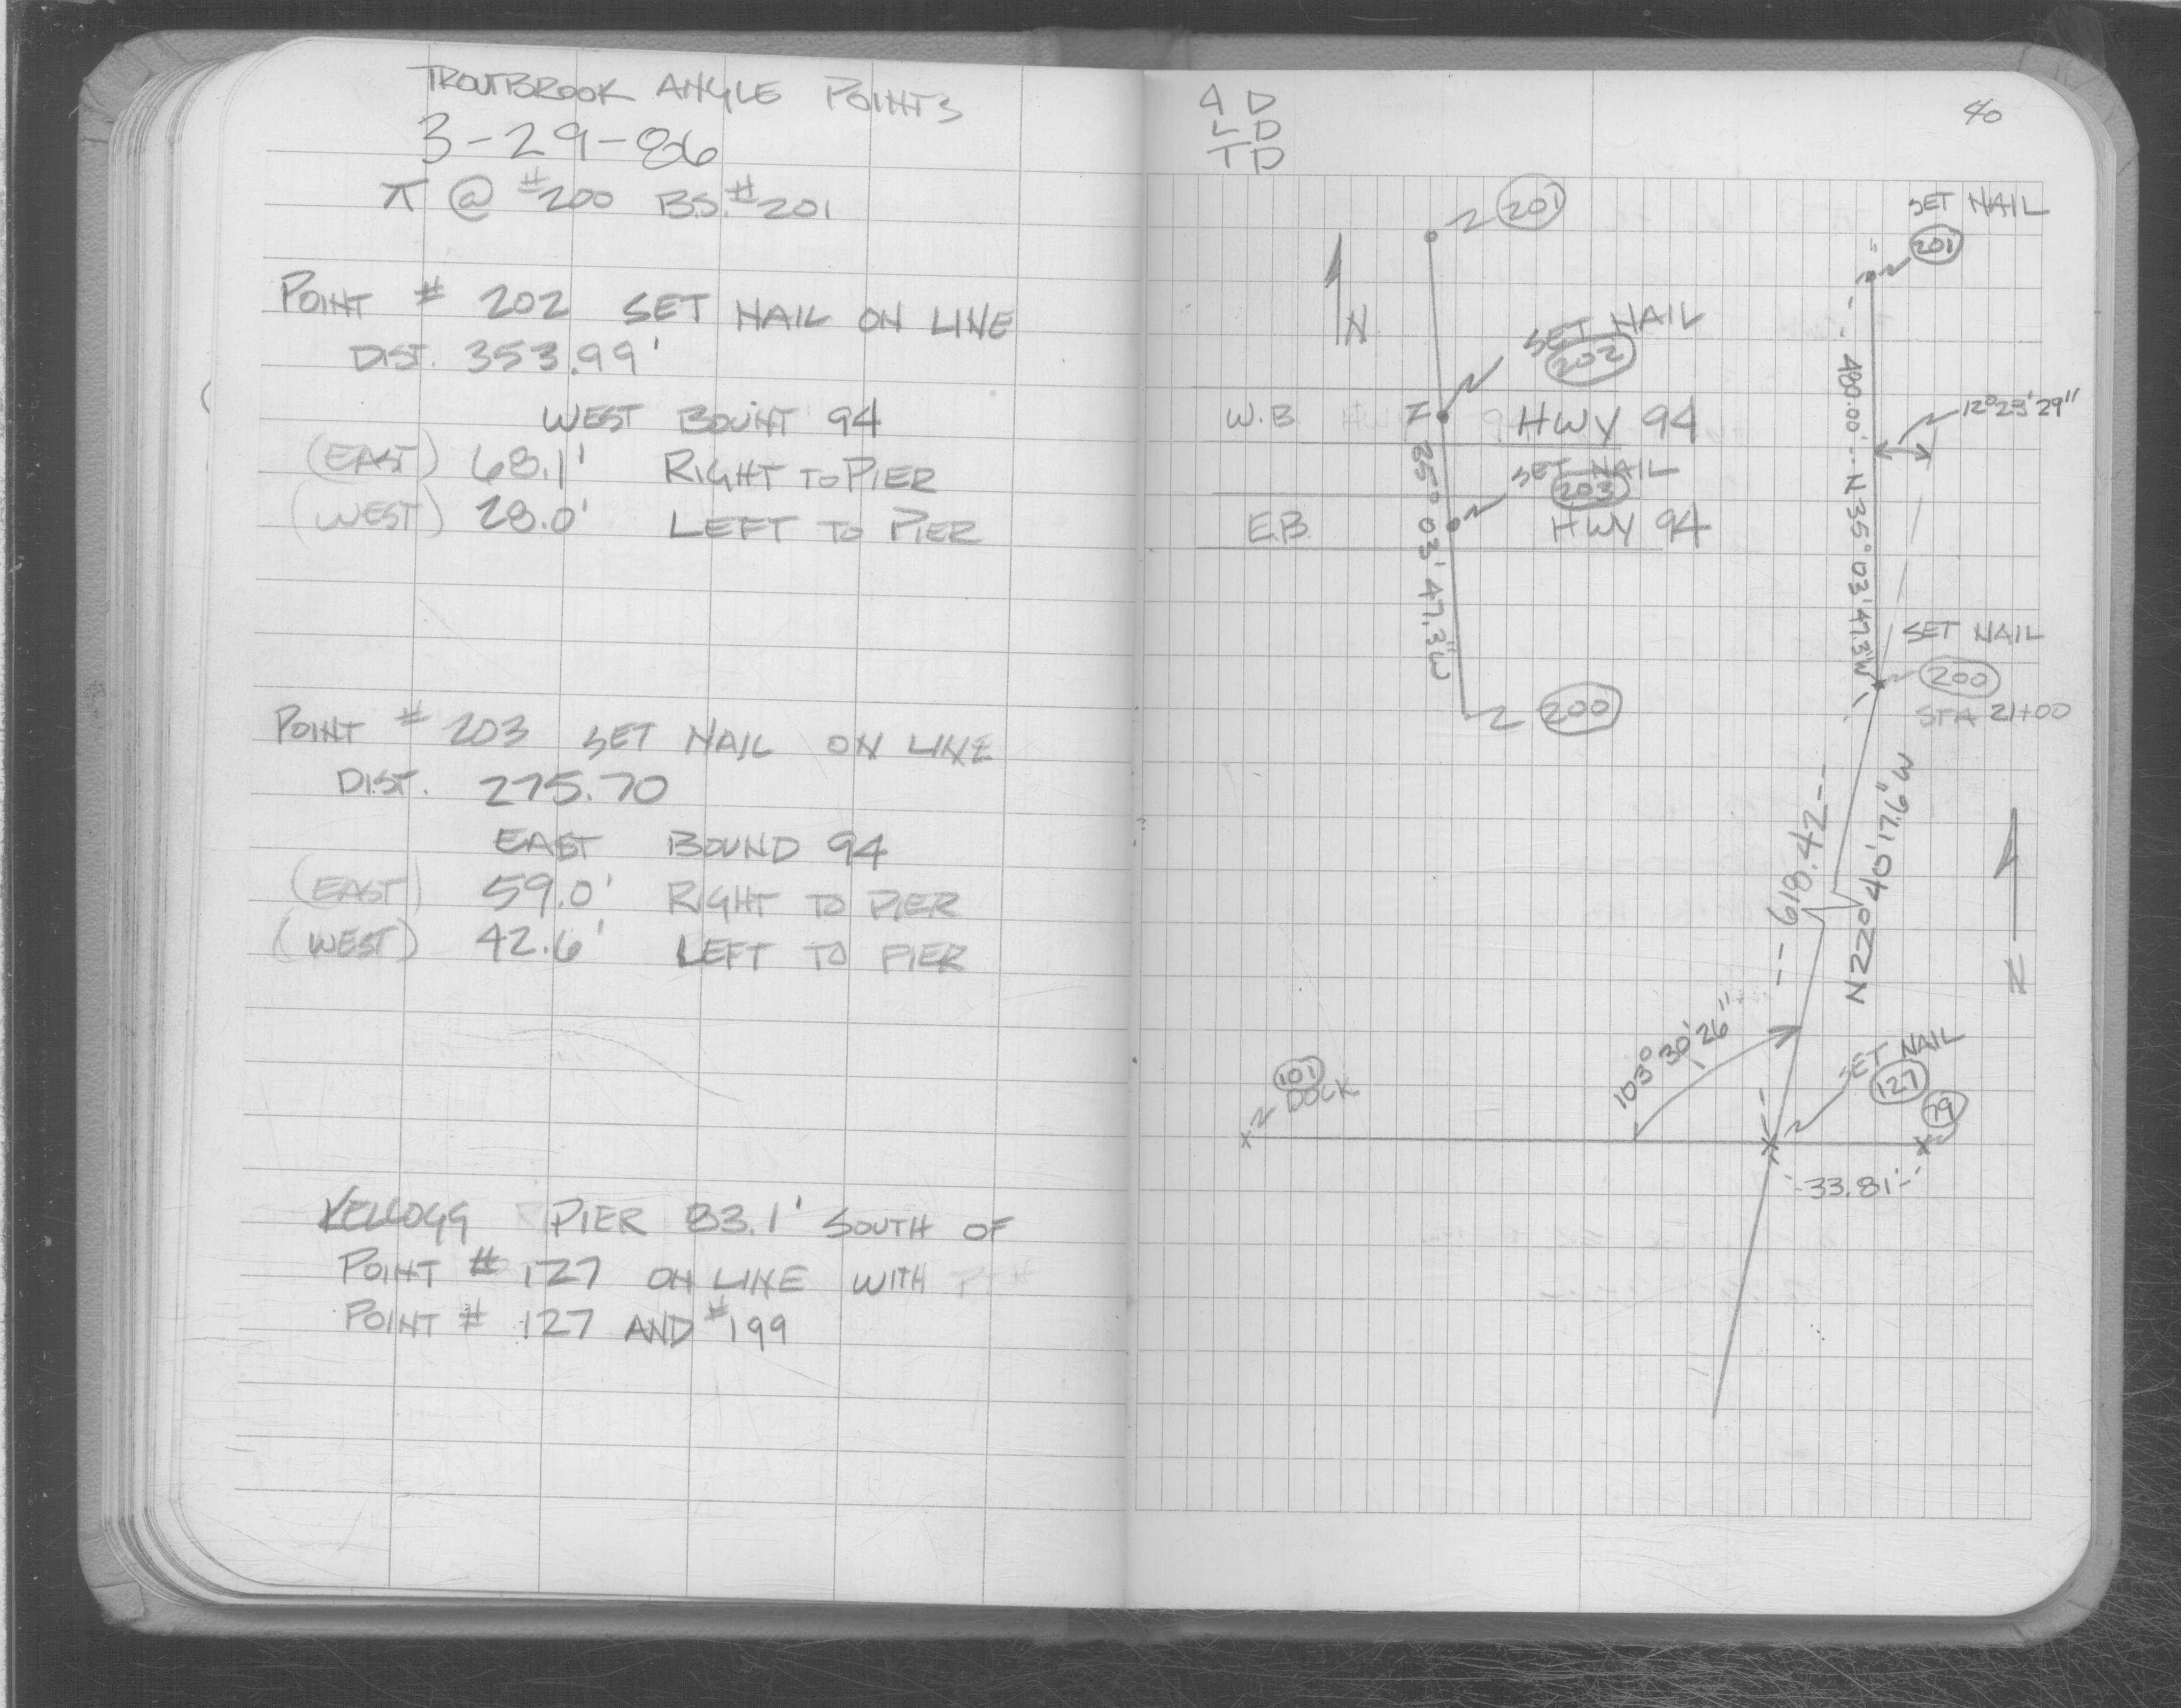 TROUTBROOK ANGLE POINTS
3-29-86
π @ #200 B.S. #201
POINT # 202 SET NAIL ON LINE
DIST. 353.99'
WEST BOUNT 94
(EAST) 68.1' RIGHT TO PIER
(WEST) 28.0' LEFT TO PIER
POINT # 203 SET NAIL ON LINE
DIST. 275.70
EAST BOUND 94
(EAST) 59.0' RIGHT TO PIER
(WEST) 42.6' LEFT TO PIER
KELLOGG PIER 83.1' SOUTH OF
POINT # 127 ON LINE WITH
POINT # 127 AND #199
A D
L D
T D
40
201
N
SET NAIL
202
W.B HWY 94
SET NAIL
203
E.B. HWY 94
N 35° 03' 47.3"W
200
SET NAIL
201
480.00' N 35° 03' 47.3"W
12°23'29"
SET NAIL
200
STA 21+00
618.42
N22°40'17.6"W
N
103°30'26"
101
DOCK
SET NAIL
127
33.81'